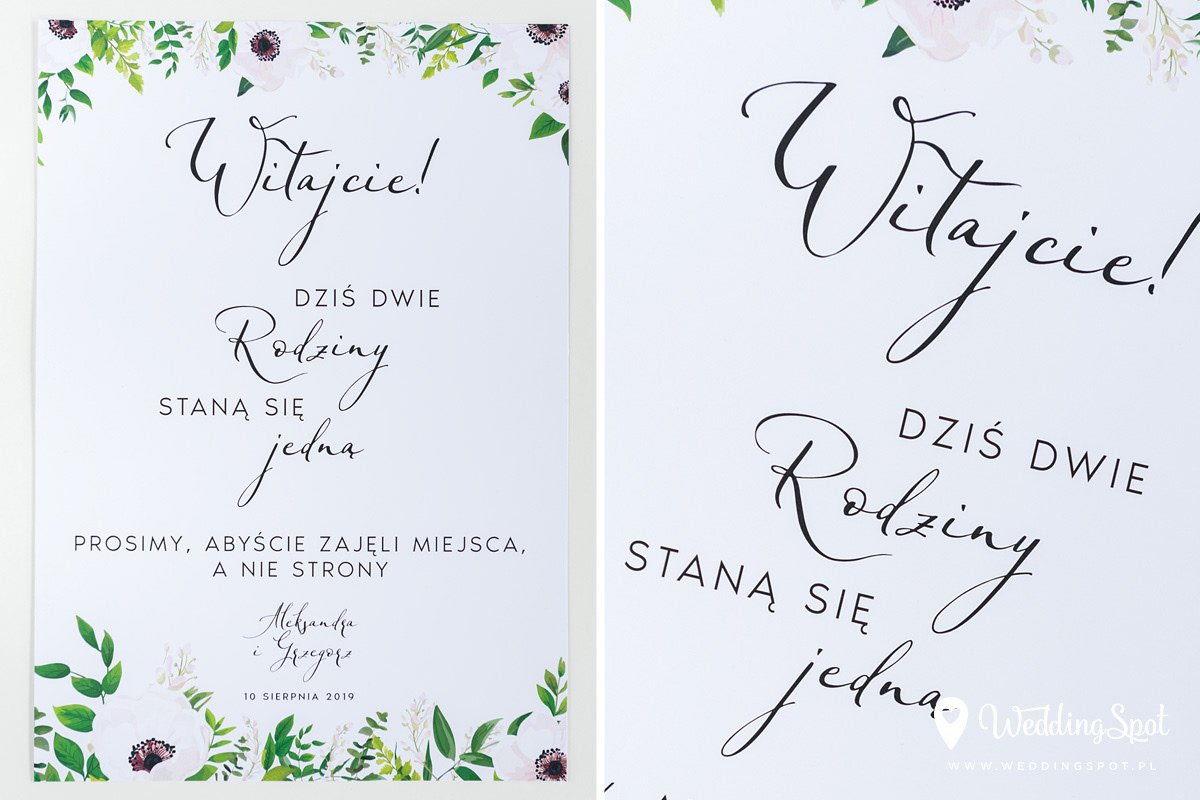 Witajcie!
DZIŚ DWIE
Rodziny
STANĄ SIĘ
jedną
PROSIMY, ABYŚCIE ZAJĘLI MIEJSCA,
A NIE STRONY
Aleksandra
i Grzegorz
10 SIERPNIA 2019
Witajcie!
DZIŚ DWIE
Rodziny
STANĄ SIĘ
jedną
WeddingSpot
WWW.WEDDINGSPOT.PL